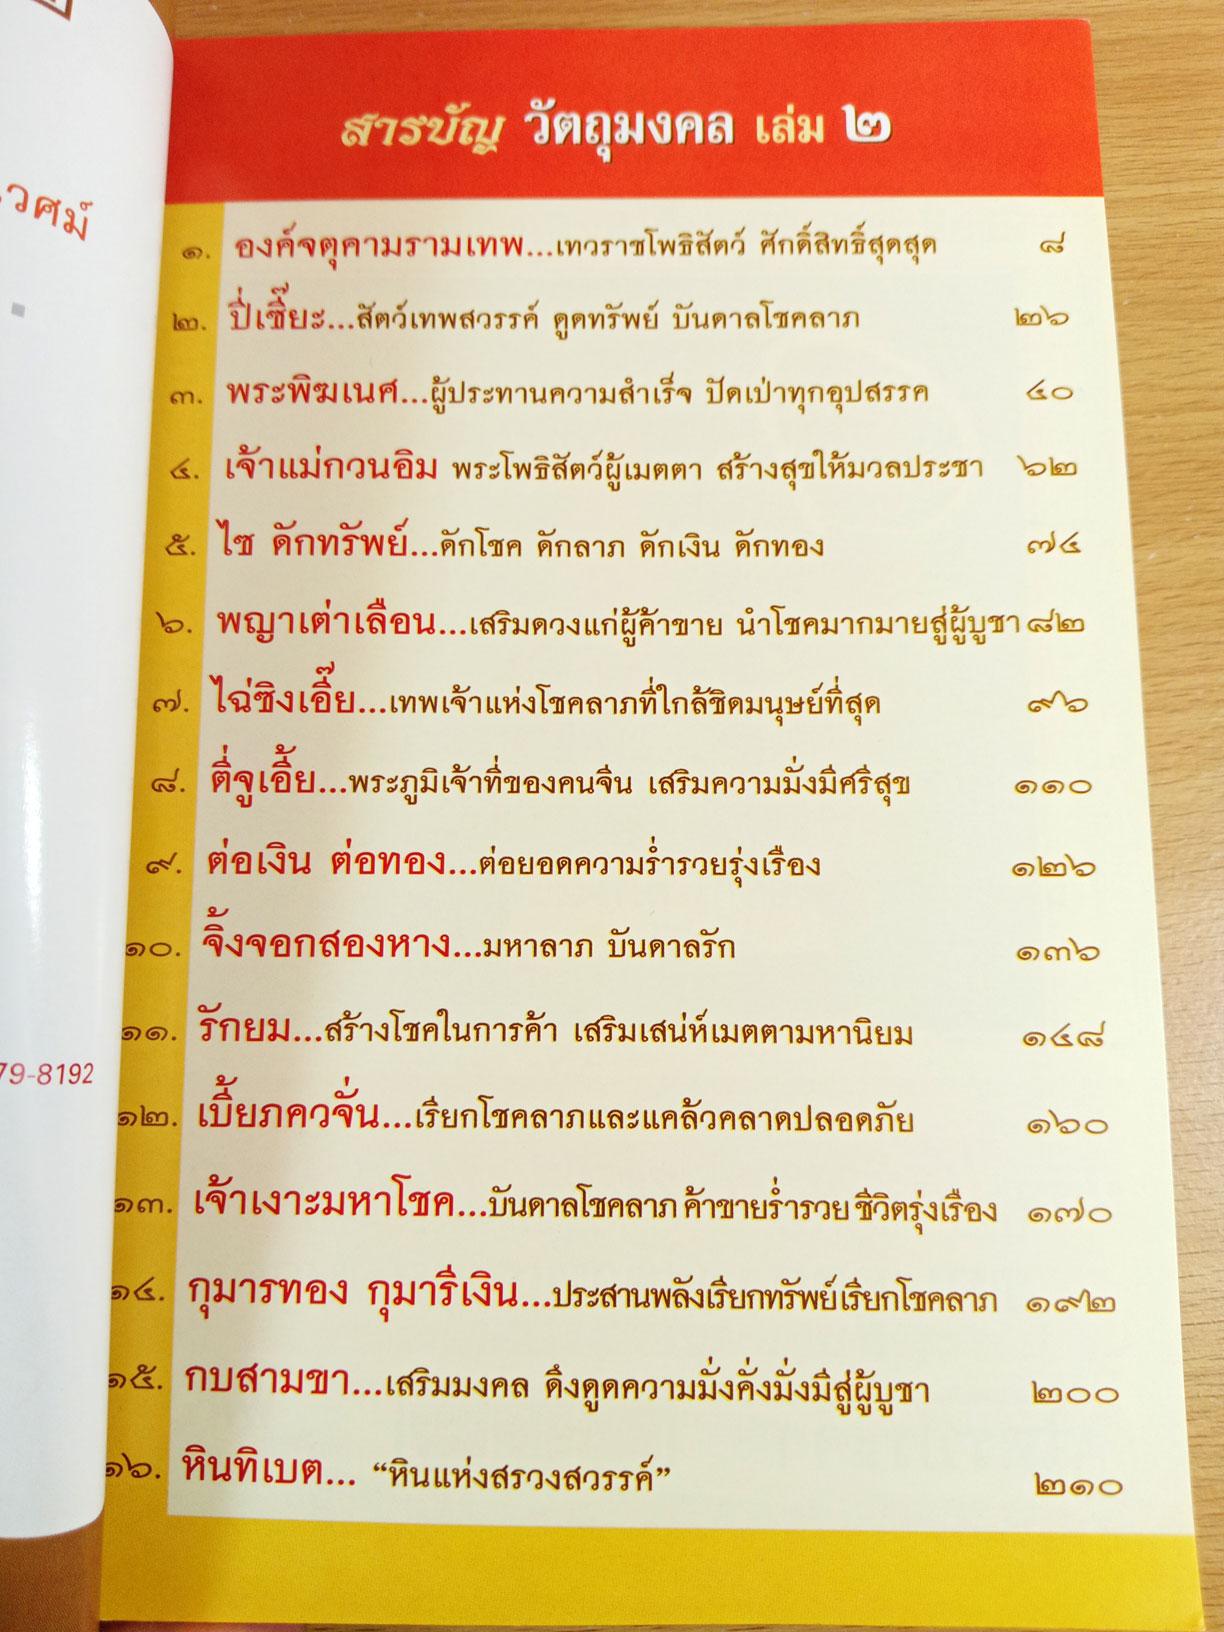 วศม์
79-8192
สารบัญ วัตถุมงคล เล่ม ๒
๑. องค์จตุคามรามเทพ...เทวราชโพธิสัตว์ ศักดิ์สิทธิ์สุดสุด ๘
๒. ปี่เซี๊ยะ...สัตว์เทพสวรรค์ ดูดทรัพย์ บันดาลโชคลาภ ๒๖
๓. พระพิฆเนศ...ผู้ประทานความสำเร็จ ปัดเป่าทุกอุปสรรค ๔๐
๔. เจ้าแม่กวนอิม พระโพธิสัตว์ผู้เมตตา สร้างสุขให้มวลประชา ๖๒
๕. ไซ ดักทรัพย์...ดักโชค ดักลาภ ดักเงิน ดักทอง ๗๔
๖. พญาเต่าเลือน...เสริมดวงแก่ผู้ค้าขาย นำโชคมากมายสู่ผู้บูชา ๘๒
๗. ไฉ่ซิงเอี๊ย...เทพเจ้าแห่งโชคลาภที่ใกล้ชิดมนุษย์ที่สุด ๙๖
๘. ตี่จูเอี้ย...พระภูมิเจ้าที่ของคนจีน เสริมความมั่งมีศรีสุข ๑๑๐
๙. ต่อเงิน ต่อทอง...ต่อยอดความร่ำรวยรุ่งเรือง ๑๒๖
๑๐. จิ้งจอกสองหาง...มหาลาภ บันดาลรัก ๑๓๖
๑๑. รักยม...สร้างโชคในการค้า เสริมเสน่ห์เมตตามหานิยม ๑๔๘
๑๒. เบี้ยภควจั่น...เรียกโชคลาภและแคล้วคลาดปลอดภัย ๑๖๐
๑๓. เจ้าเงาะมหาโชค...บันดาลโชคลาภ ค้าขายร่ำรวย ชีวิตรุ่งเรือง ๑๗๐
๑๔. กุมารทอง กุมารีเงิน...ประสานพลังเรียกทรัพย์เรียกโชคลาภ ๑๙๒
๑๕. กบสามขา...เสริมมงคล ดึงดูดความมั่งคั่งมั่งมีสู่ผู้บูชา ๒๐๐
๑๖. หินทิเบต... “หินแห่งสรวงสวรรค์” ๒๑๐